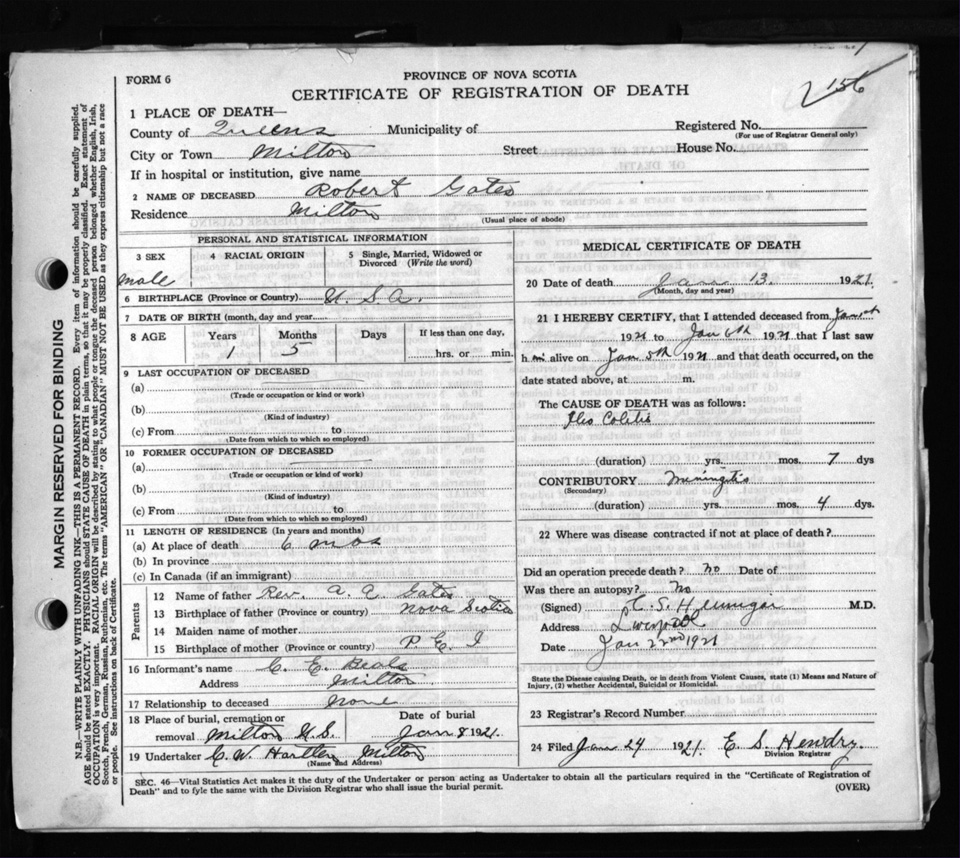 156
FORM 6
PROVINCE OF NOVA SCOTIA
CERTIFICATE OF REGISTRATION OF DEATH
1 PLACE OF DEATH—
County of Queens Municipality of Registered No.
(For use of Registrar General only)
City or Town Milton Street House No.
If in hospital or institution, give name
2 NAME OF DECEASED Robert Gates
Residence Milton
(Usual place of abode)
PERSONAL AND STATISTICAL INFORMATION
3 SEX 4 RACIAL ORIGIN 5 Single, Married, Widowed or Divorced (Write the word)
male
6 BIRTHPLACE (Province or Country) U. S. A.
7 DATE OF BIRTH (month, day and year)
8 AGE Years Months Days If less than one day,
1 5 hrs. or min.
9 LAST OCCUPATION OF DECEASED
(a)
(Trade or occupation or kind or work)
(b)
(Kind of industry)
(c) From to
(Date from which to which so employed)
10 FORMER OCCUPATION OF DECEASED
(a)
(Trade or occupation or kind of work)
(b)
(Kind of industry)
(c) From to
(Date from which to which so employed)
11 LENGTH OF RESIDENCE (In years and months)
(a) At place of death 6 mos
(b) In province
(c) In Canada (if an immigrant)
Parents
12 Name of father Rev. A. Gates
13 Birthplace of father (Province or country) Nova Scotia
14 Maiden name of mother
15 Birthplace of mother (Province or country) P. E. I
16 Informant's name C. E. Beals
Address Milton
17 Relationship to deceased None
18 Place of burial, cremation or removal Milton N.S. Date of burial Jan 8 1921.
19 Undertaker C. W. Hartlen Milton
(Name and Address)
MEDICAL CERTIFICATE OF DEATH
20 Date of death Jan. 13. 1921.
(Month, day and year)
21 I HEREBY CERTIFY, that I attended deceased from
1921 to Jan 6th 1921 that I last saw
him alive on Jan 5th 1921 and that death occurred, on the
date stated above, at m.
The CAUSE OF DEATH was as follows:
Ileo Colitis
(duration) yrs. mos. 7 dys
CONTRIBUTORY Meningitis
(Secondary)
(duration) yrs. mos. 4 dys.
22 Where was disease contracted if not at place of death?
Did an operation precede death? no Date of
Was there an autopsy? No
(Signed) C. S. Hennigar M.D.
Address Liverpool
Date Jan 22nd 1921
State the Disease causing Death, or in death from Violent Causes, state (1) Means and Nature of
Injury, (2) whether Accidental, Suicidal or Homicidal.
23 Registrar's Record Number
24 Filed Jan 24 1921. E. S. Hendry.
Division Registrar
SEC. 46—Vital Statistics Act makes it the duty of the Undertaker or person acting as Undertaker to obtain all the particulars required in the "Certificate of Registration of
Death" and to fyle the same with the Division Registrar who shall issue the burial permit.
(OVER)
MARGIN RESERVED FOR BINDING
N.B.—WRITE PLAINLY WITH UNFADING INK—THIS IS A PERMANENT RECORD. Every item of information should be carefully supplied.
AGE should be stated EXACTLY. PHYSICIANS should STATE CAUSE OF DEATH in plain terms, so that it may be properly classified. Exact statement of
OCCUPATION is very important. RACIAL ORIGIN will be described by stating to what people or tongue the deceased person belonged whether English, Irish,
Scotch, French, German, Russian, Ruthenian, etc. The terms "AMERICAN" OR "CANADIAN" MUST NOT BE USED as they express citizenship but not a race
or people. See instructions on back of Certificate.